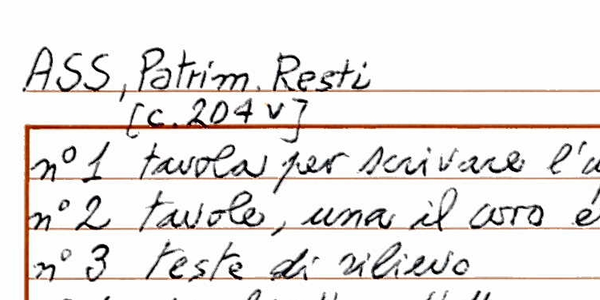 ASS, Patrim. Resti
[c. 204 v]
n° 1 tavola per scrivare l'
n° 2 tavole, una il coro
n° 3 teste di rilievo